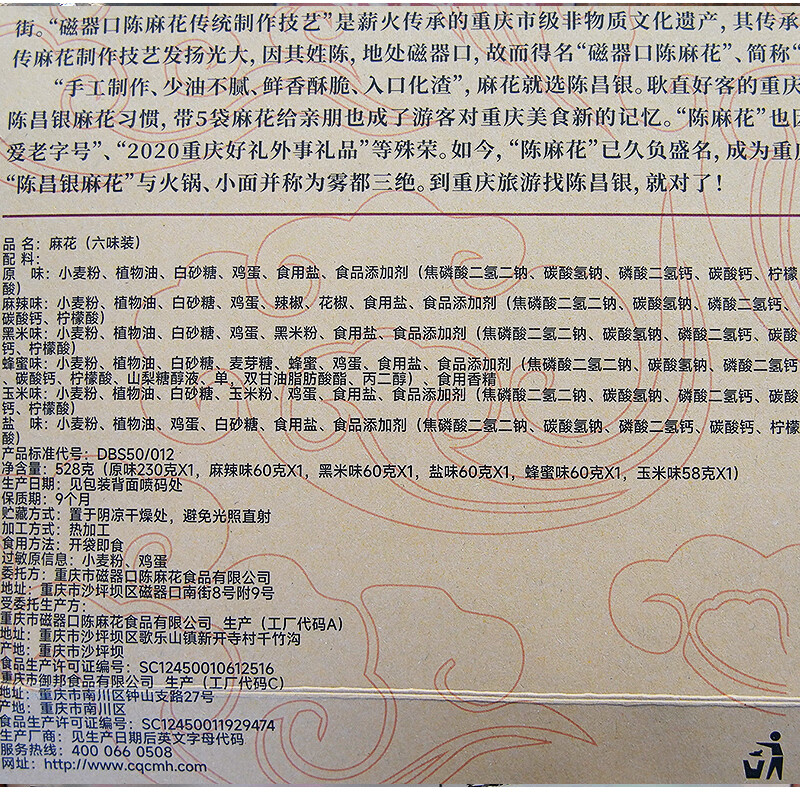 街。“磁器口陈麻花传统制作技艺”是薪火传承的重庆市级非物质文化遗产，其传承
传麻花制作技艺发扬光大，因其姓陈，地处磁器口，故而得名“磁器口陈麻花”、简称“
“手工制作、少油不腻、鲜香酥脆、入口化渣”，麻花就选陈昌银。耿直好客的重庆
陈昌银麻花习惯，带5袋麻花给亲朋也成了游客对重庆美食新的记忆。“陈麻花”也因
爱老字号”、“2020重庆好礼外事礼品”等殊荣。如今，“陈麻花”已久负盛名，成为重庆
“陈昌银麻花”与火锅、小面并称为雾都三绝。到重庆旅游找陈昌银，就对了！
品 名：麻花（六味装）
配 料：
原　味：小麦粉、植物油、白砂糖、鸡蛋、食用盐、食品添加剂（焦磷酸二氢二钠、碳酸氢钠、磷酸二氢钙、碳酸钙、柠檬
酸）
麻辣味：小麦粉、植物油、白砂糖、鸡蛋、辣椒、花椒、食用盐、食品添加剂（焦磷酸二氢二钠、碳酸氢钠、磷酸二氢钙、
碳酸钙、柠檬酸）
黑米味：小麦粉、植物油、白砂糖、鸡蛋、黑米粉、食用盐、食品添加剂（焦磷酸二氢二钠、碳酸氢钠、磷酸二氢钙、碳酸
钙、柠檬酸）
蜂蜜味：小麦粉、植物油、白砂糖、麦芽糖、蜂蜜、鸡蛋、食用盐、食品添加剂（焦磷酸二氢二钠、碳酸氢钠、磷酸二氢钙
、碳酸钙、柠檬酸、山梨糖醇液、单，双甘油脂肪酸酯、丙二醇）、食用香精
玉米味：小麦粉、植物油、白砂糖、玉米粉、鸡蛋、食用盐、食品添加剂（焦磷酸二氢二钠、碳酸氢钠、磷酸二氢钙、碳酸
钙、柠檬酸）
盐　味：小麦粉、植物油、鸡蛋、白砂糖、食用盐、食品添加剂（焦磷酸二氢二钠、碳酸氢钠、磷酸二氢钙、碳酸钙、柠檬
酸）
产品标准代号：DBS50/012
净含量：528克（原味230克X1，麻辣味60克X1，黑米味60克X1，盐味60克X1，蜂蜜味60克X1，玉米味58克X1）
生产日期：见包装背面喷码处
保质期：9个月
贮藏方式：置于阴凉干燥处，避免光照直射
加工方式：热加工
食用方法：开袋即食
过敏原信息：小麦粉、鸡蛋
委托方：重庆市磁器口陈麻花食品有限公司
地址：重庆市沙坪坝区磁器口南街8号附9号
受委托生产方：
重庆市磁器口陈麻花食品有限公司 生产（工厂代码A）
地址：重庆市沙坪坝区歌乐山镇新开寺村千竹沟
产地：重庆市沙坪坝
食品生产许可证编号：SC12450010612516
重庆市御邦食品有限公司 生产（工厂代码C）
地址：重庆市南川区钟山支路27号
产地：重庆市南川区
食品生产许可证编号：SC12450011929474
生产厂商：见生产日期后英文字母代码
服务热线：400 066 0508
网址：http://www.cqcmh.com